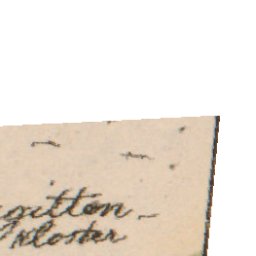 gitten-
kloster